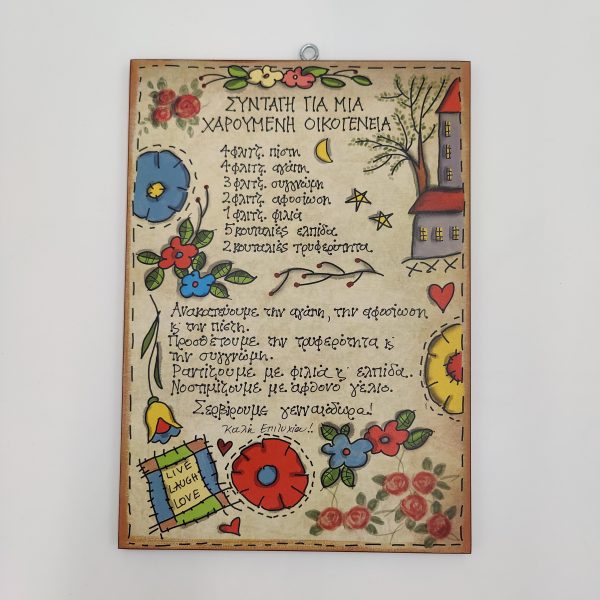 ΣΥΝΤΑΓΗ ΓΙΑ ΜΙΑ
ΧΑΡΟΥΜΕΝΗ ΟΙΚΟΓΕΝΕΙΑ
4 φλιτζ. πίστη
4 φλιτζ. αγάπη
3 φλιτζ. συγγνώμη
2 φλιτζ. αφοσίωση
1 φλιτζ. φιλιά
5 κουταλιές ελπίδα
2 κουταλιές τρυφερότητα
Ανακατεύουμε την αγάπη, την αφοσίωση
κ' την πίστη.
Προσθέτουμε την τρυφερότητα κ'
την συγγνώμη.
Ραντίζουμε με φιλιά κ' ελπίδα.
Νοστιμίζουμε με άφθονο γέλιο.
Σερβίρουμε γενναιόδωρα!
Καλή Επιτυχία!!
LIVE
LAUGH
LOVE